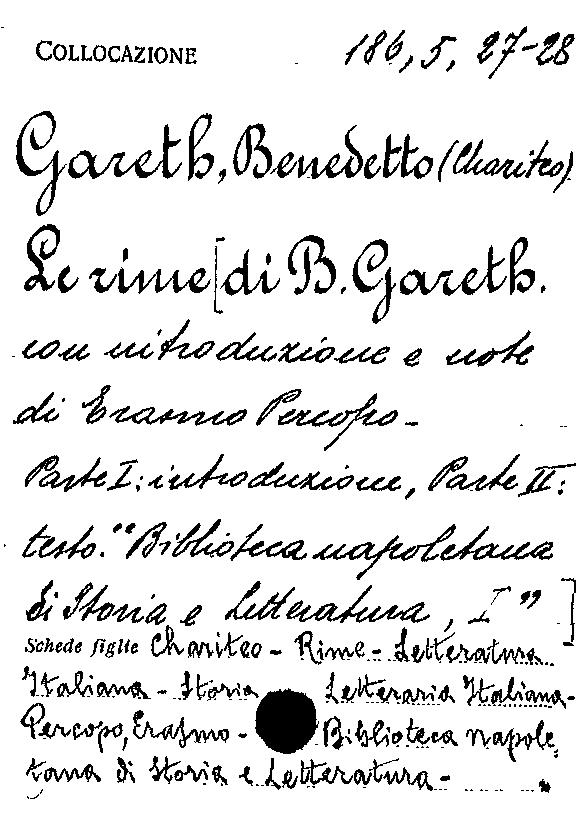 COLLOCAZIONE 186, 5, 27-28
Gareth, Benedetto (Chariteo)
Le rime [di B. Gareth.
con introduzione e note
di Erasmo Percopo -
Parte I: introduzione, Parte II:
testo. "Biblioteca napoletana
di Storia e Letteratura, I" ]
Schede figlie Chariteo - Rime - Letteratura
Italiana - Storia Letteraria Italiana -
Percopo, Erasmo - Biblioteca napole,
tana di Storia e Letteratura -